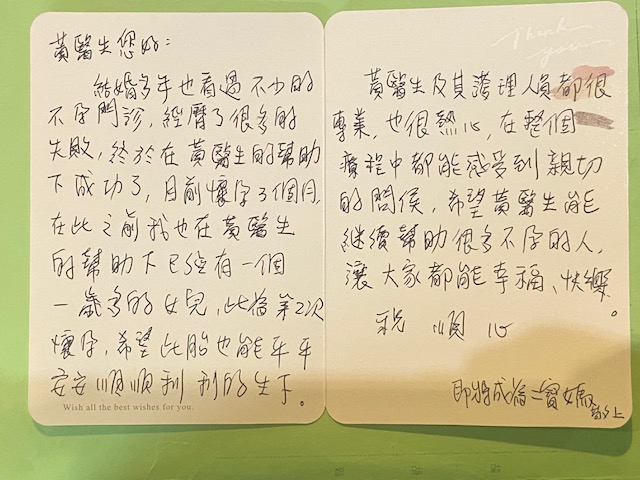 黃醫生您好：
結婚多年也看過不少的
不孕門診，經曆了很多的
失敗，終於在黃醫生的幫助
下成功了，目前懷孕3個月，
在此之前我也在黃醫生
的幫助下已經有一個
一歲多的女兒，此為第2次
懷孕，希望此胎也能平平
安安順順利利的生下。
Wish all the best wishes for you.
Thank
you
黃醫生及其護理人員都很
專業，也很熱心，在整個
療程中都能感受到親切
的問侯，希望黃醫生能
継續幫助很多不孕的人，
讓大家都能幸福、快樂。
祝 順心
即將成為二寶媽
上